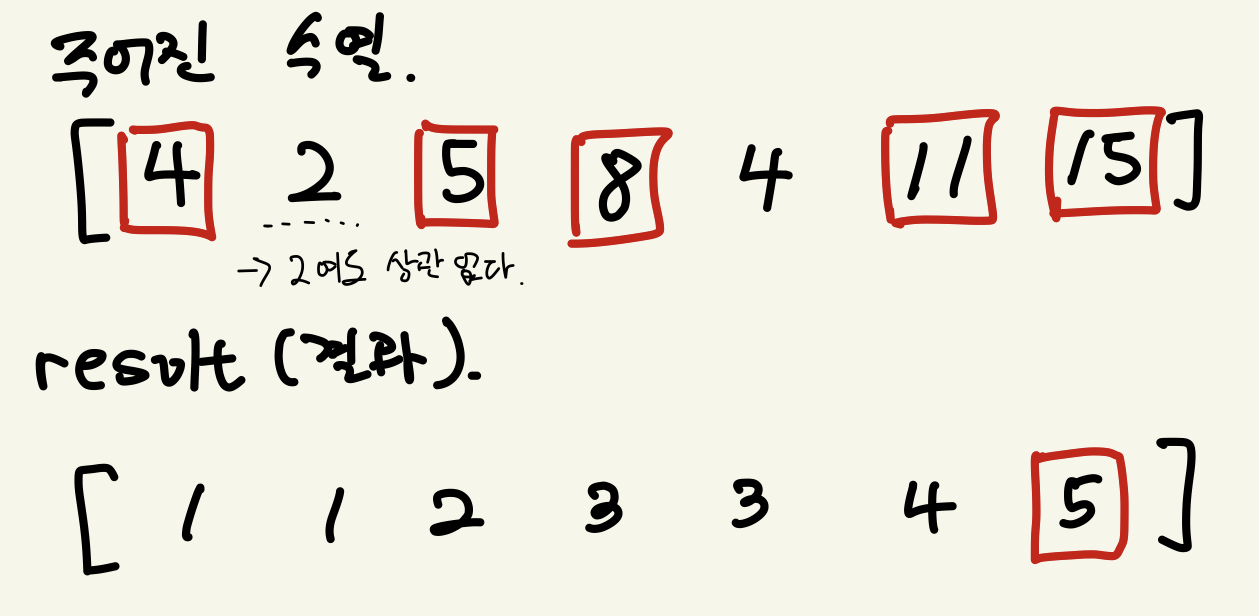 주어진 수열.
[ 4 2 5 8 4 11 15 ]
→ 2여도 상관 없다.
result (결과).
[ 1 1 2 3 3 4 5 ]